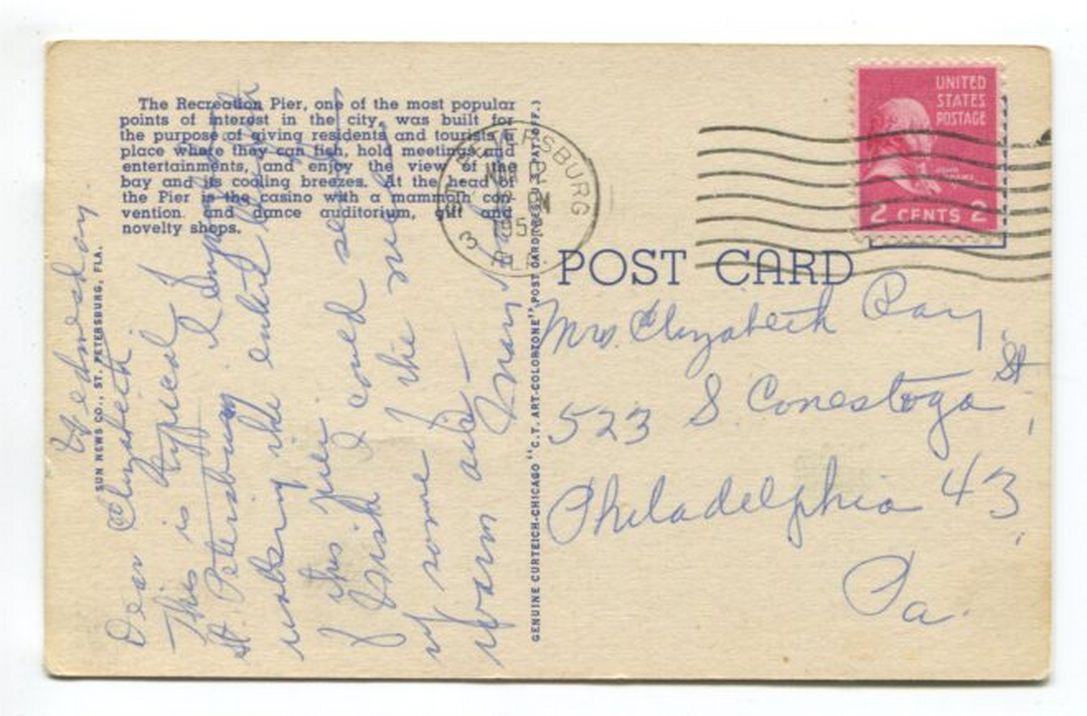 The Recreation Pier, one of the most popular
points of interest in the city, was built for
the purpose of giving residents and tourists a
place where they can fish, hold meetings and
entertainments, and enjoy the view of the
bay and its cooling breezes. At the head of
the Pier is the casino with a mammoth con-
vention and dance auditorium, gift and
novelty shops.
SUN NEWS CO., ST. PETERSBURG, FLA.
Wednesday
Dear Elizabeth
This is typical of
St. Petersburg. I enjoyed
walking the entire length
of this pier.
I wish I could send
of some of the nice
warm air—
Mary
GENUINE CURTEICH-CHICAGO "C.T. ART-COLORTONE" POST CARD (REG. U.S. PAT. OFF.)
ST. PETERSBURG
12
PM
195
3
FLA.
UNITED
STATES
POSTAGE
JOHN ADAMS
2 CENTS 2
POST CARD
Mrs. Elizabeth Ray
523 S Conestoga St.
Philadelphia 43
Pa.